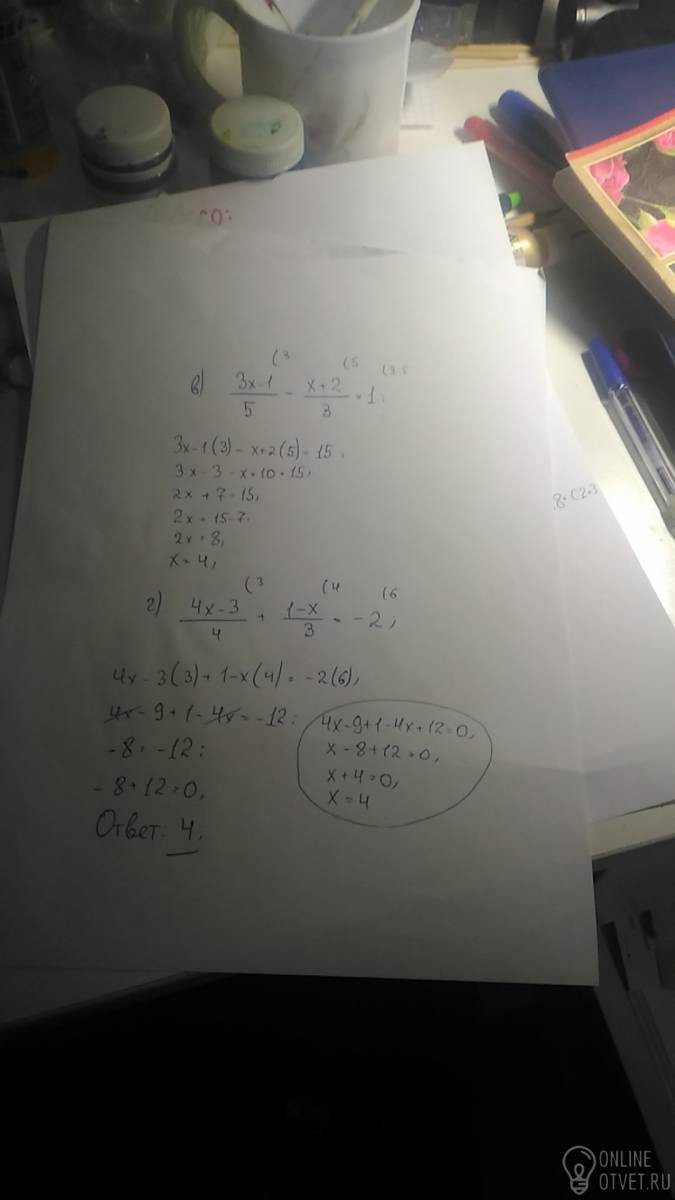 в) (3 (5 (3·5
3x-1/5 - x+2/3 = 1;
3x-1(3) - x+2(5) = 15;
3x-3-x+10=15;
2x+7=15;
2x=15-7;
2x=8;
x=4;
г) (3 (4 (6
4x-3/4 + 1-x/3 = -2;
4x-3(3)+1-x(4)=-2(6);
4x-9+1-4x=-12;
-8=-12;
-8+12=0,
Ответ: 4;
4x-9+1-4x+12=0,
x-8+12=0,
x+4=0,
x=4
ONLINE
OTVET.RU